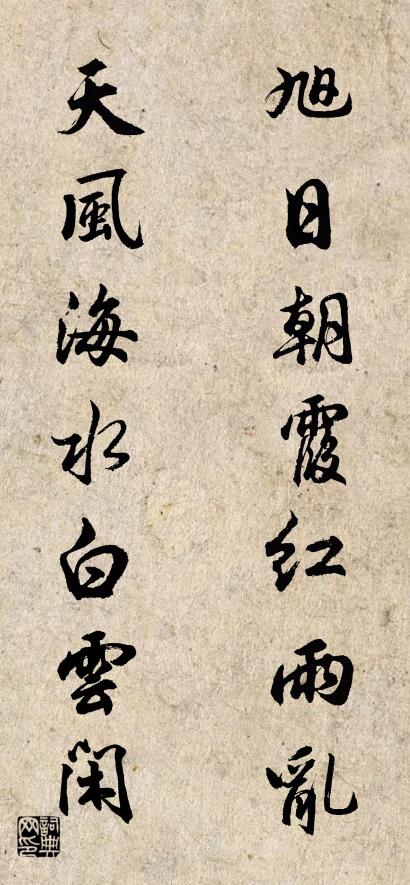 旭日朝霞紅雨亂
天風海水白雲閑
詞典網印